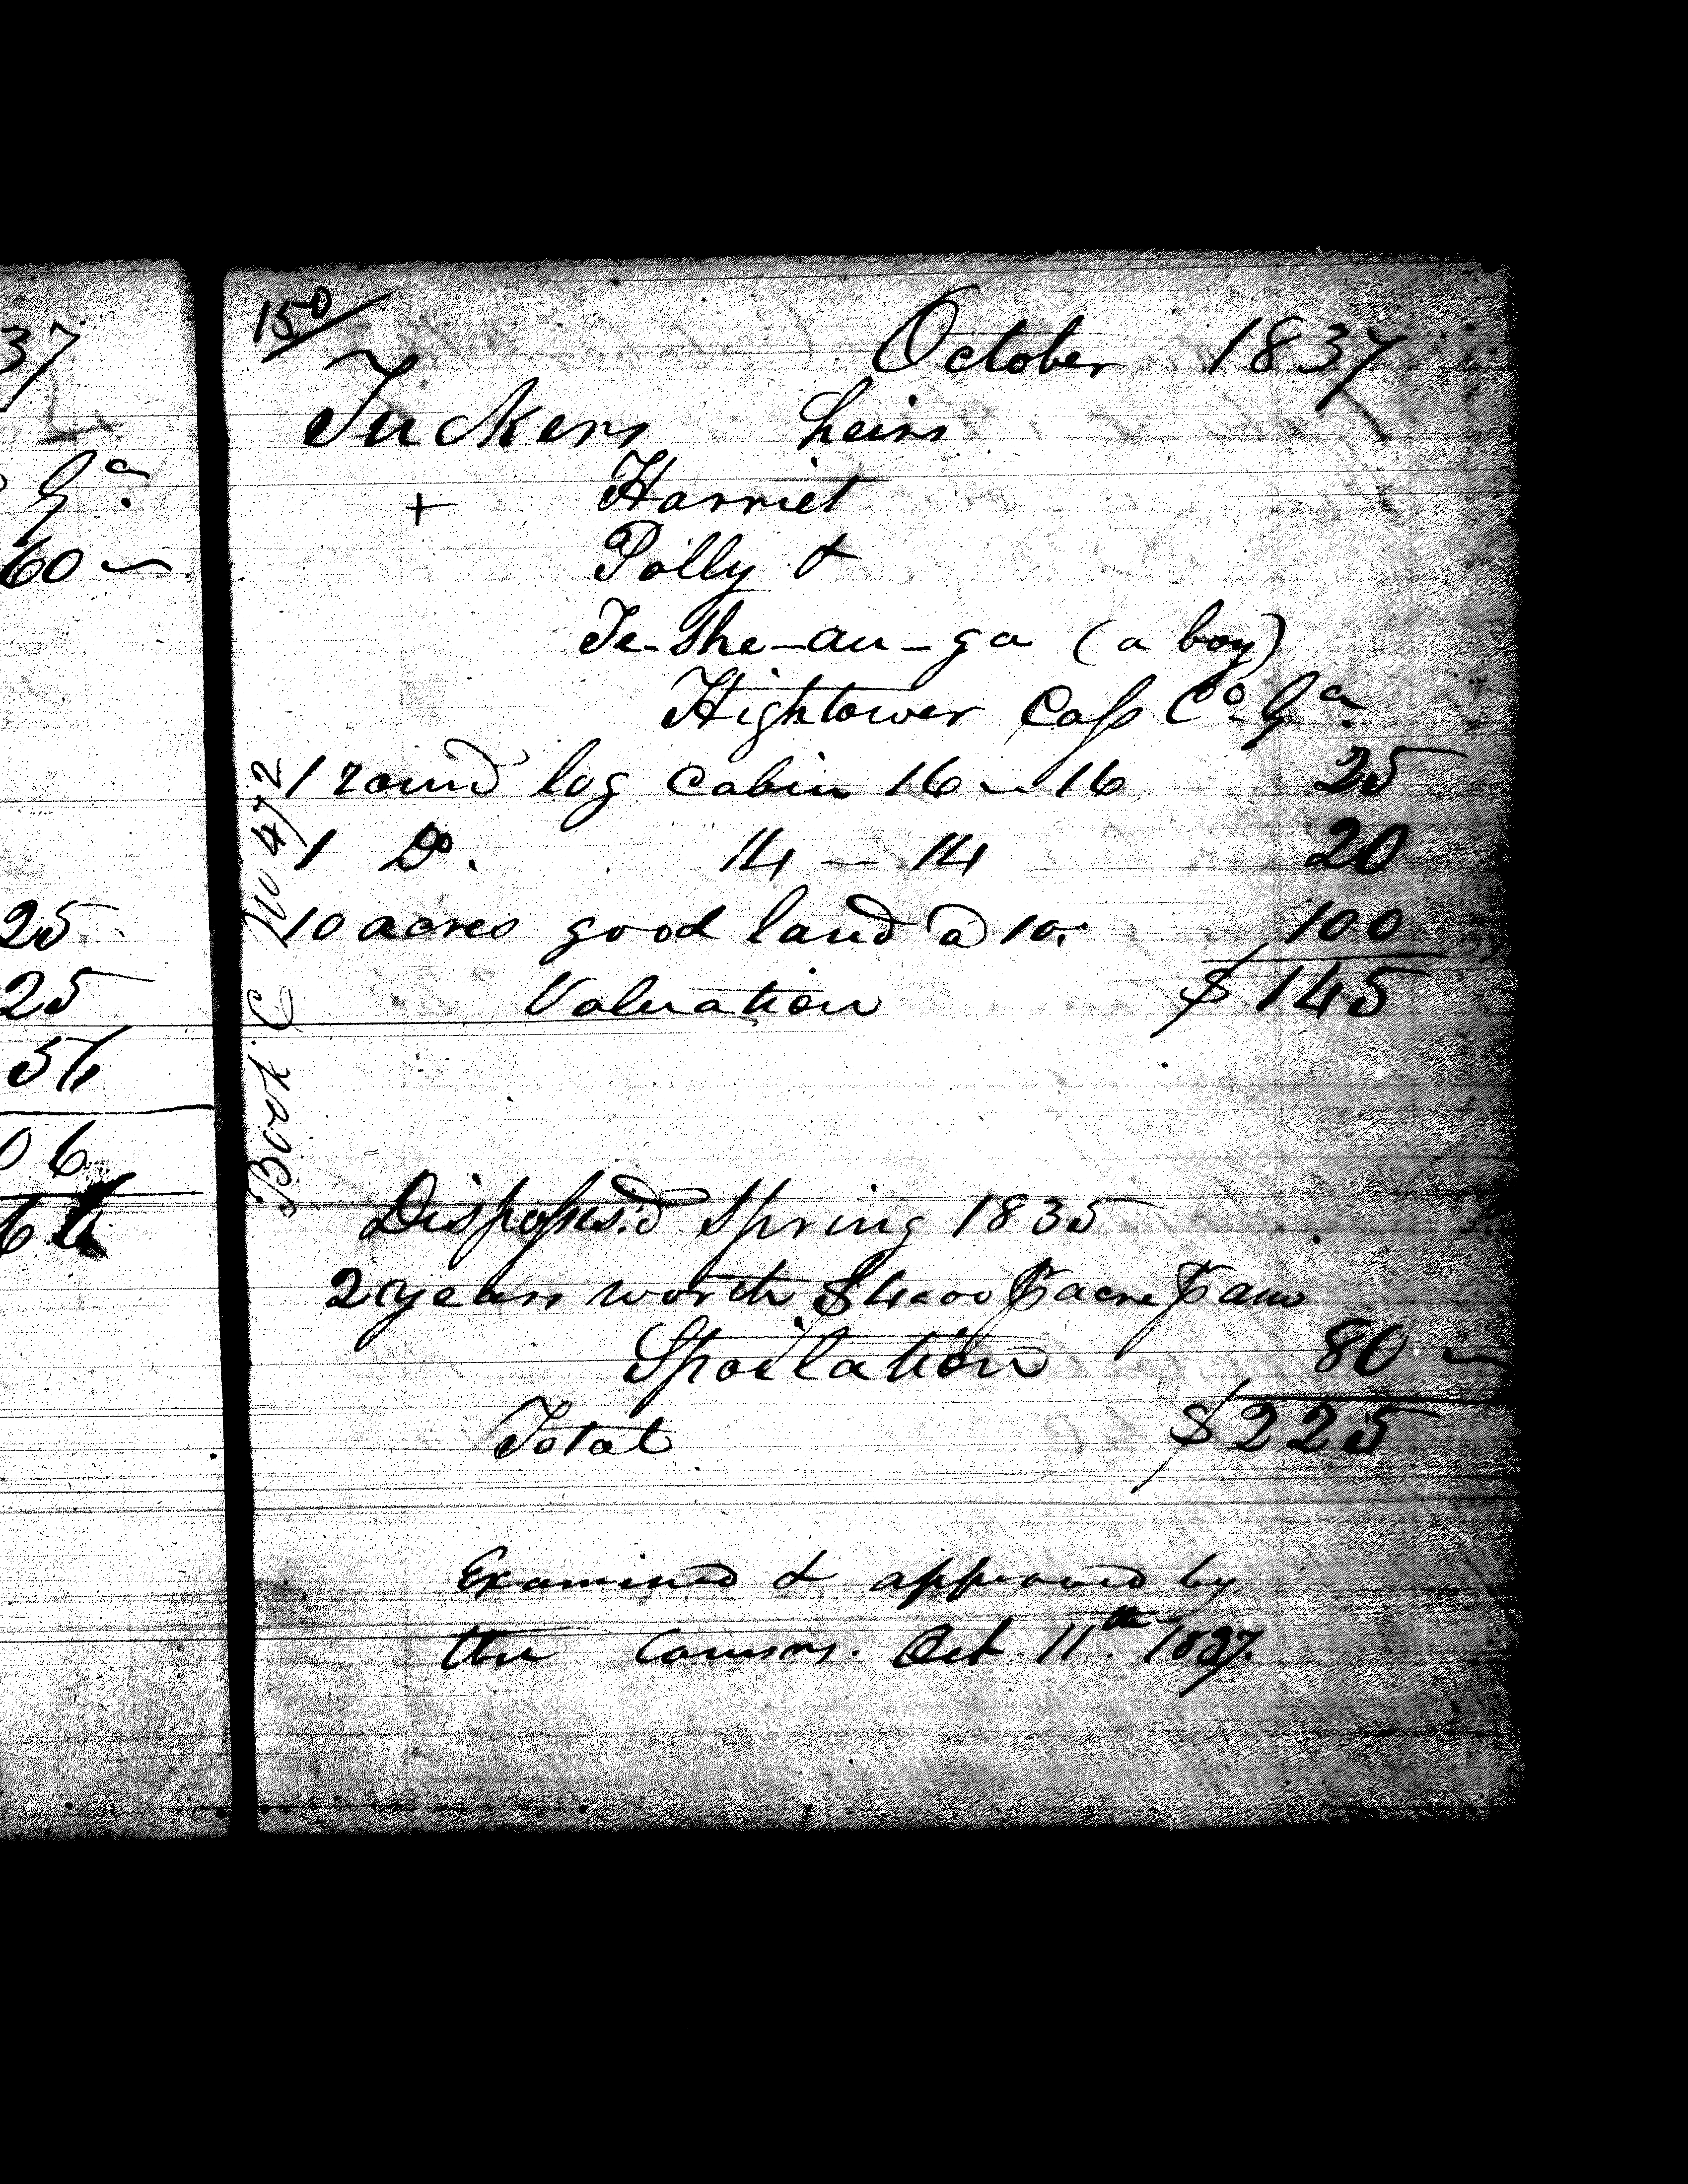 37
Ga.
60
25
25
54
06
64
150
October 1837
Tuckers heirs
+ Harriet
Polly &
Te-she-au-ga (a boy)
Hightower Cass Co. Ga.
1 round log cabin 16 - 16 25
1 Do. 14 - 14 20
10 acres good land @ 10. 100
Valuation $145
Book C No 472
Dispossess'd Spring 1835
2 years worth $4.00 ⅌ acre ⅌ ann
Spoilation 80
Total $225
Examined & approved by
the Comsrs. Oct. 11th. 1837.